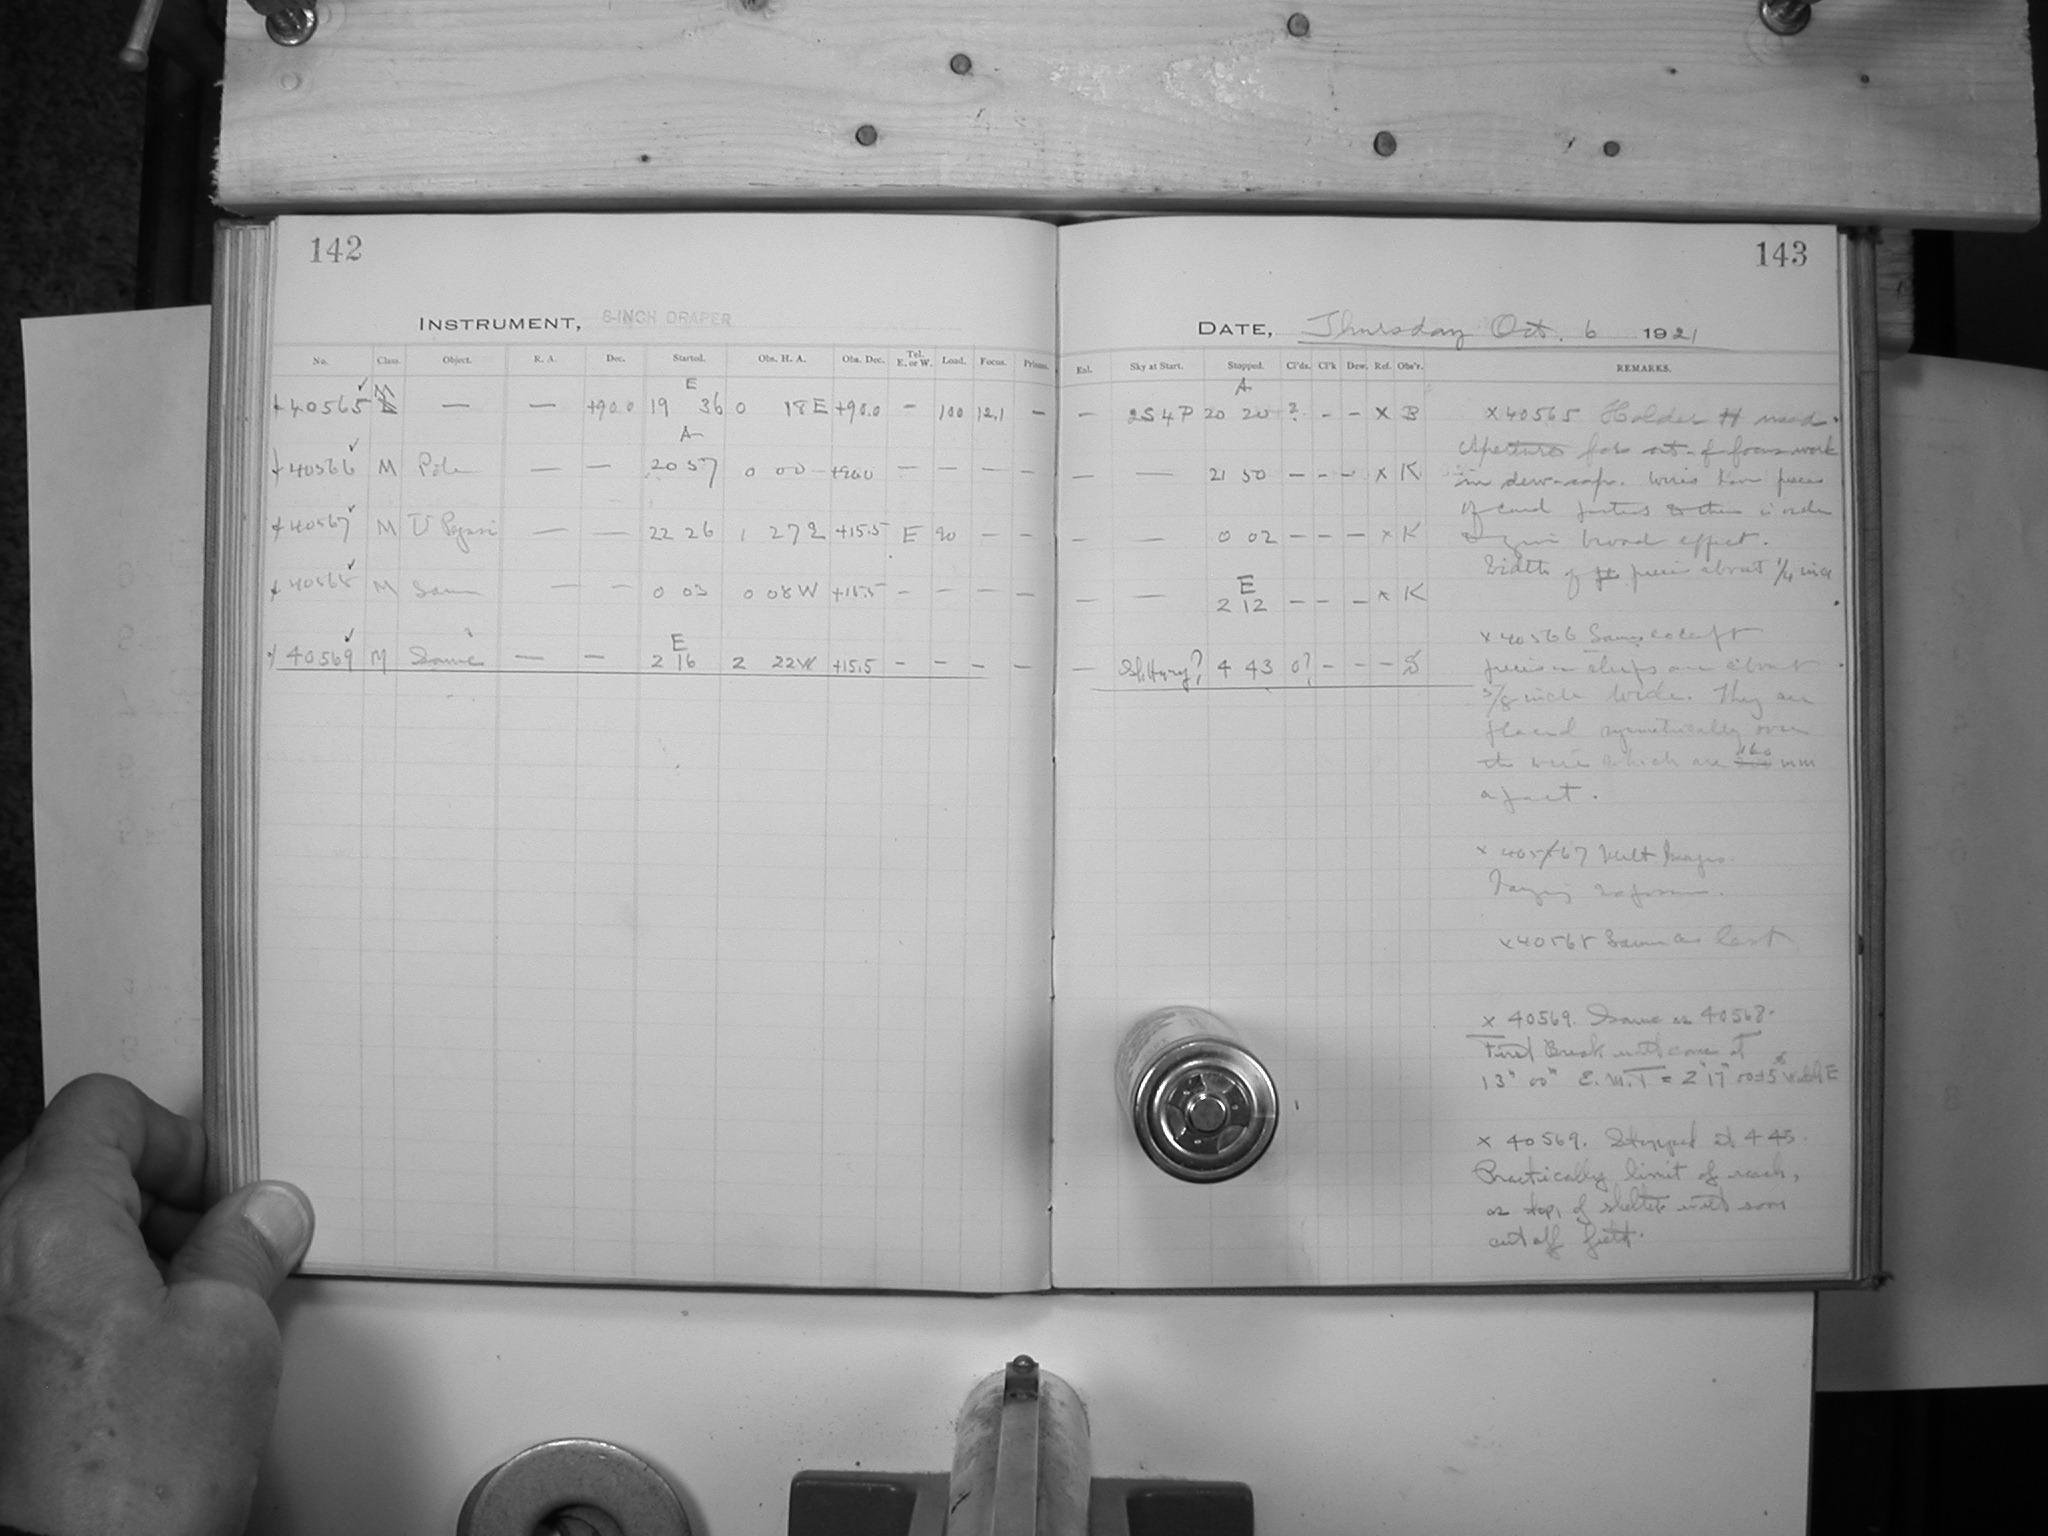 142
143
INSTRUMENT, 8-INCH DRAPER
DATE, Thursday Oct. 6 1921
No. Class. Object. R. A. Dec. Started. Obs. H. A. Obs. Dec. Tel. E. or W. Load. Focus. Prisms.
Exl. Sky at Start. Stopped. Cl'ds. Cl'k Dew. Ref. Obs'r. REMARKS.
E
A
40565 — — +90.0 19 36 0 18E +90.0 – 100 12.1 –
– 2S4P 20 20 ? – – X B
A
40566 M Pole — — 20 57 0 00 +90.0 – – – –
— — 21 50 – – – x K
40567 M U Pegasi — — 22 26 1 27E +15.5 E 90 – –
– — 0 02 – – – x K
40568 M Same — — 0 03 0 08W +15.5 – – – –
E
– — 2 12 – – – x K
E
40569 M Same — — 2 16 2 22W +15.5 – – – –
— Sl. Hazy? 4 43 0? – – – S
X 40565 Holder H used.
Apertures for out-of-focus work
in dew-cap. Wires have pieces
of card
to give broad effect.
Width of pieces about 1/4 inch
x 40566 Same except
pieces are about
3/8 inch wide. They are
placed symetrically over
the wires which are 160 mm
apart.
x 40567 Mult Images.
Varying exposures.
x 40568 Same as last
x 40569. Same as 40568.
First Break will come at
13 00 E.M.T = 2 17 00±5 Watch E
x 40569. Stopped at 4 43.
Practically limit of reach,
as top of shelter will soon
cut off field.